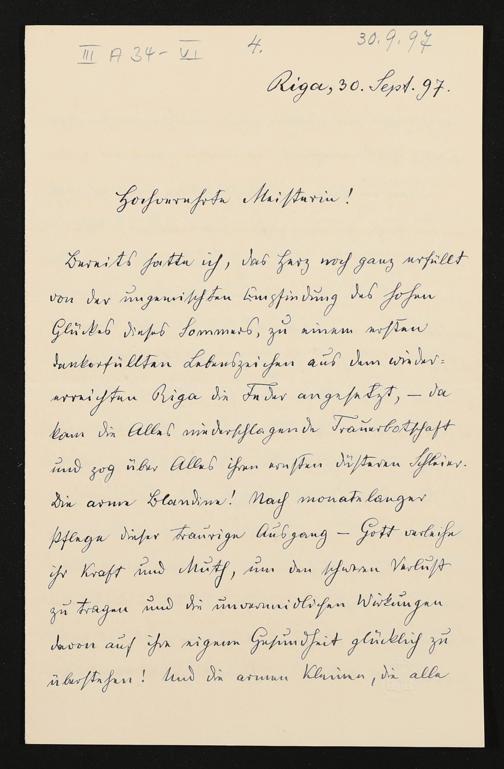 III A 34-VI
4.
30.9.97
Riga, 30. Sept. 97.
Hochverehrte Meisterin!
Bereits hatte ich, das Herz noch ganz erfüllt
von der ungemischten Empfindung des hohen
Glückes dieses Sommers, zu einem ersten
dankerfüllten Lebenszeichen aus dem wieder-
erreichten Riga die Feder angesetzt, – da
kam die Alles niederschlagende Trauerbotschaft
und zog über Alles ihren ernsten düsteren Schleier.
Die arme Blandine! Nach monatelanger
Pflege dieser traurige Ausgang – Gott verleihe
ihr Kraft und Muth, um den schweren Verlust
zu tragen und die unvermeidlichen Wirkungen
davon auf ihre eigene Gesundheit glücklich zu
überstehen! Und die armen Kleinen, die alle